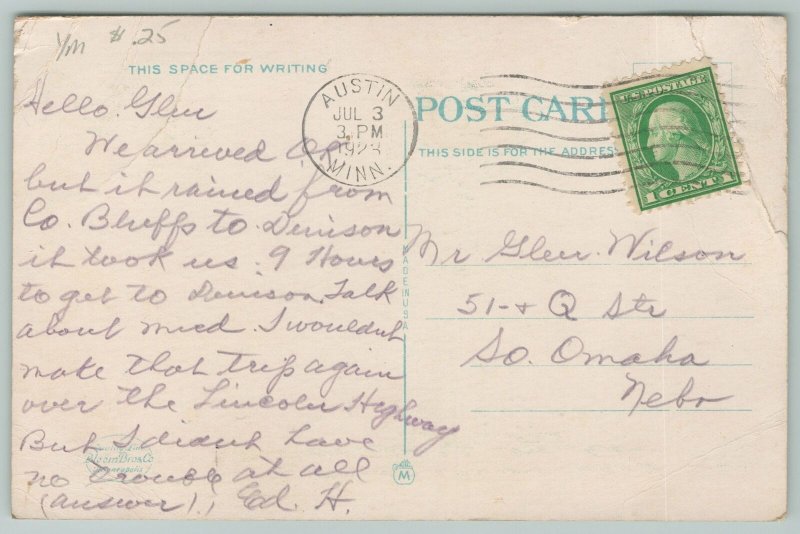 Y/M $.25
THIS SPACE FOR WRITING
Hello. Glen
We arrived O.K.
but it rained from
Co. Bluffs to Denison
it took us. 9 Hours
to get to Denison. Talk
about mud. I wouldnt
make that trip again
over the Lincoln Highway
But I didnt have
no trouble at all
(answer). Ed. H.
Bloom Bros. Co
Minneapolis
AUSTIN
JUL 3
3 PM
MINN.
POST CARD
THIS SIDE IS FOR THE ADDRESS
U.S. POSTAGE
1 CENT 1
MADE IN USA
Mr Glen. Wilson
51-+ Q Str
So. Omaha
Nebr
M